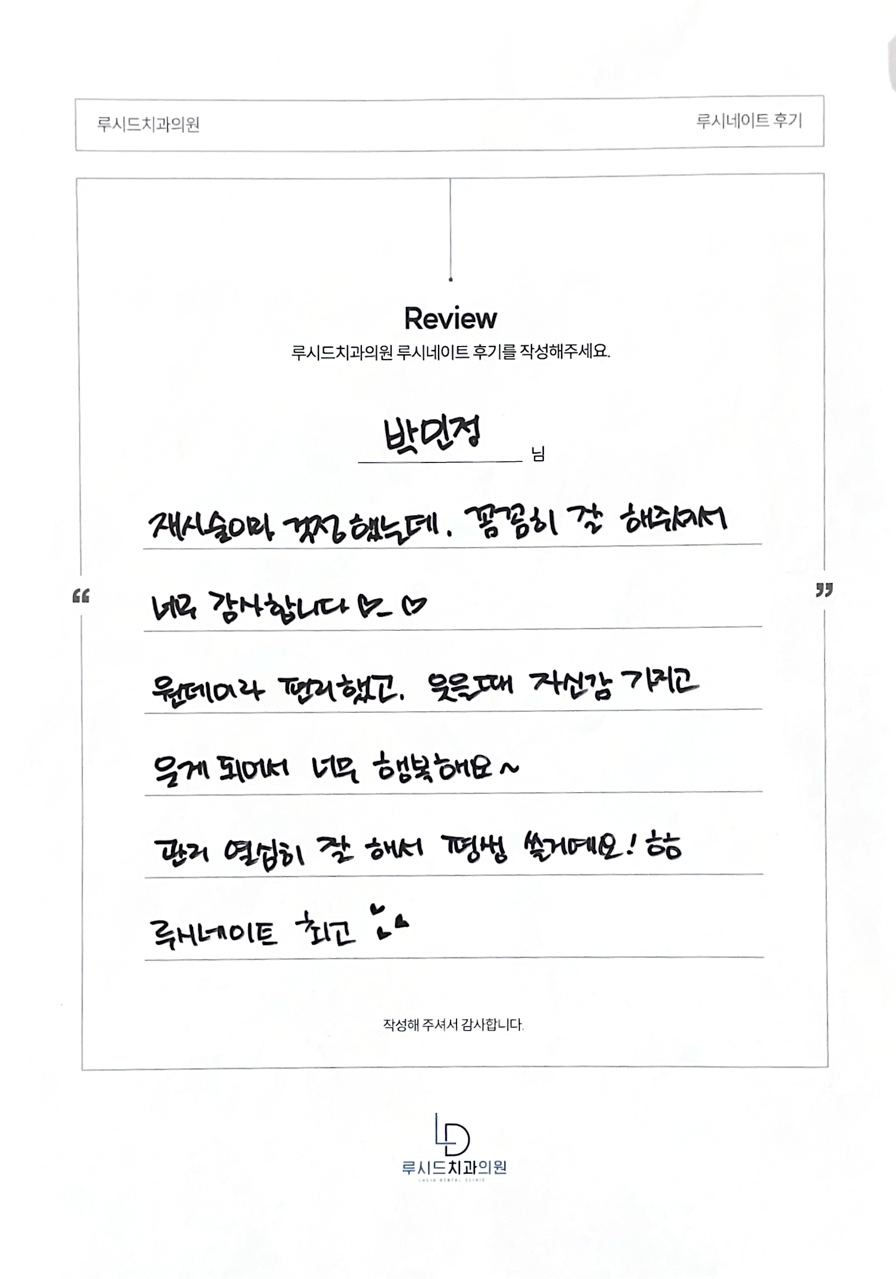 루시드치과의원
루시네이트 후기
Review
루시드치과의원 루시네이트 후기를 작성해주세요.
박민정 님
재시술이라 걱정했는데, 꼼꼼히 잘 해주셔서
“ 너무 감사합니다 ♡_♡ ”
원데이라 편리했고, 웃을때 자신감 가지고
웃게 되어서 너무 행복해요~
관리 열심히 잘 해서 평생 쓸거예요! ㅎㅎ
루시네이트 최고
작성해 주셔서 감사합니다.
LD
루시드치과의원
LUCID DENTAL CLINIC